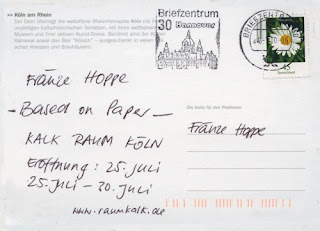 >> Köln am Rhein
Der Dom überragt die weltoffene Rheinmetropole Köln mit
sympathischen Altstadt, mit ihren
Museen und ihrer aktiven Kunst-Szene. Berühmt sind der Kölner
Karneval sowie das Bier "Kölsch"
schen Kneipen und Brauhäusern.
Briefzentrum
30 Hannover
BRIEFZENTRUM
45
Deutschland
Franze Hoppe
- Based on Paper -
KALK RAUM KÖLN
Eröffnung : 25. juli
25. juli - 30. juli
www.raumkalk.de
Franze Hoppe